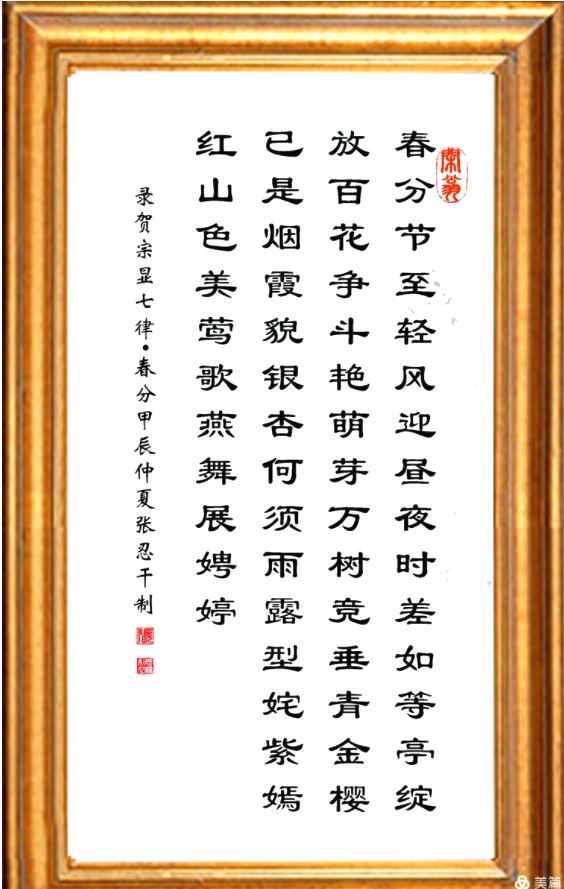 春分节至轻风迎昼夜时差如等亭绽
放百花争斗艳萌芽万树竞垂青金樱
已是烟霞貌银杏何须雨露型姹紫嫣
红山色美莺歌燕舞展娉婷
录贺宗显七律•春分甲辰仲夏张忍干制
美篇